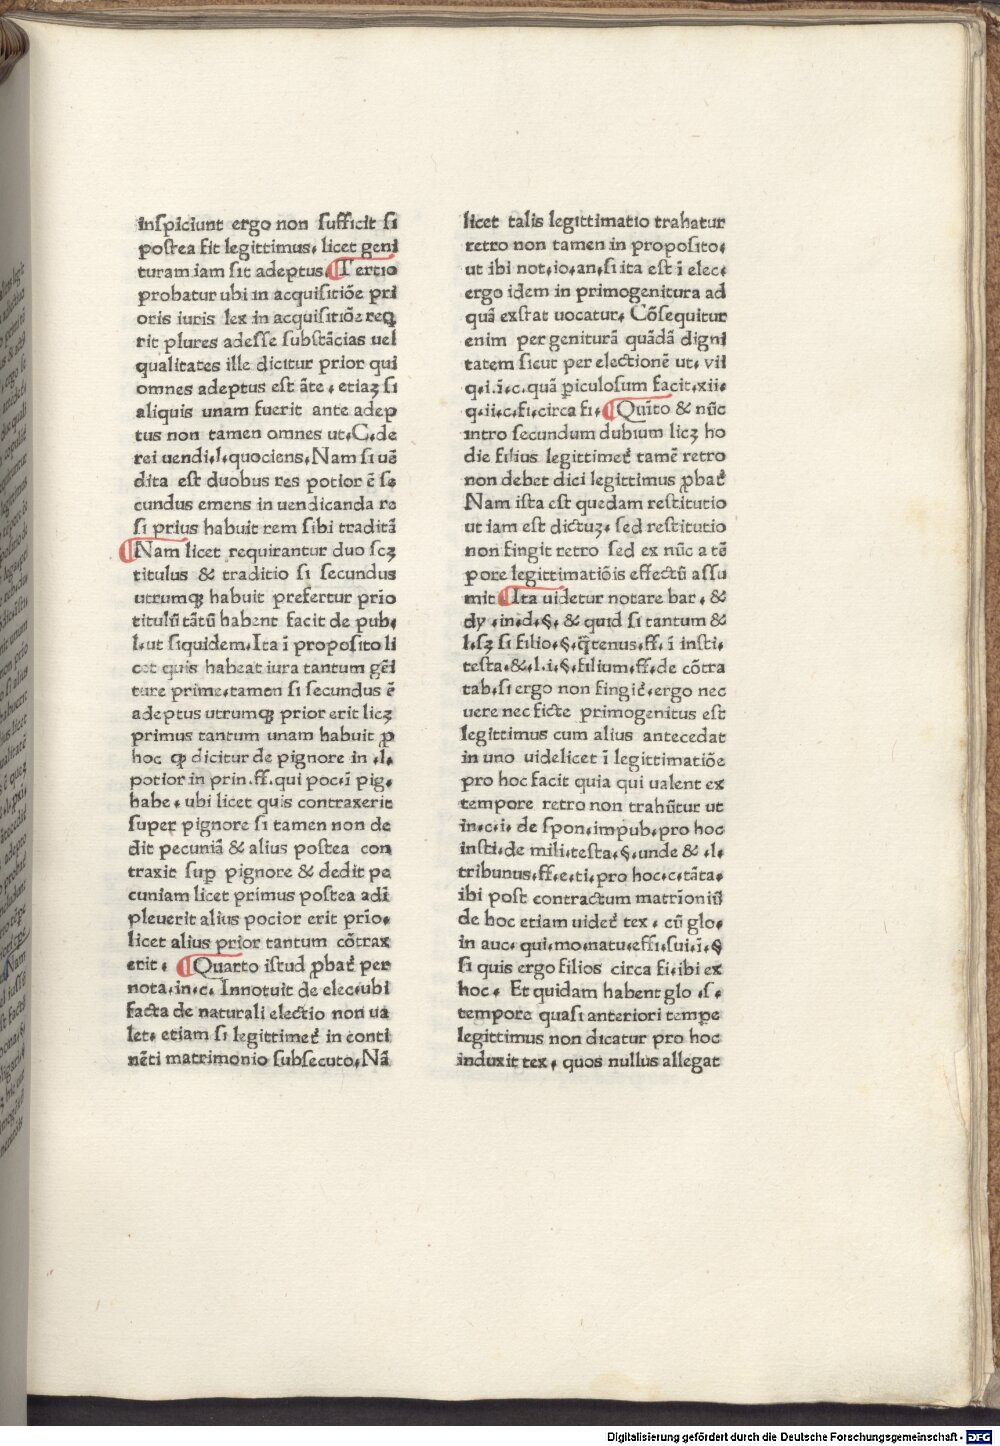 inspiciunt ergo non sufficit si
postea fit legittimus. licet geni
turam iam sit adeptus. ¶Tertio
probatur ubi in acquisitiõe pri
oris iuris lex in acquisitiõe req̃
rit plures adesse substãcias uel
qualitates ille dicitur prior qui
omnes adeptus est ãte. etiaꝫ si
aliquis unam fuerit ante adep
tus non tamen omnes ut.C.de
rei uendi.l.quociens.Nam si uẽ
dita est duobus res potior ẽ se
cundus emens in uendicanda re
si prius habuit rem sibi traditã
¶Nam licet requirantur duo scꝫ
titulus & traditio si secundus
utrumqꝫ habuit prefertur prio
titulũ tãtũ habent facit de pub.
l.ut siquidem.Ita ĩ proposito li
cet quis habeat iura tantum gẽi
ture prime.tamen si secundus ẽ
adeptus utrumqꝫ prior erit licꝫ
primus tantum unam habuit ꝓ
hoc ꝙ dicitur de pignore in .l.
potior in prin.ff.qui poc.ĩ pig.
habe. ubi licet quis contraxerit
super pignore si tamen non de
dit pecuniã & alius postea con
traxit suꝑ pignore & dedit pe
cuniam licet primus postea adĩ
pleuerit alius pocior erit prĩo.
licet alius prior tantum cõtrax
erit. ¶Quarto istud ꝓbat᷑ per
nota.in.c. Innotuit de elec.ubi
facta de naturali electio non ua
let. etiam si legittimet᷑ in conti
nẽti matrimonio subsecuto.Nã
licet talis legittimatio trahatur
retro non tamen in proposito.
ut ibi not.io.an.si ita est ĩ elec.
ergo idem in primogenitura ad
quã exstat uocatur. Cõsequitur
enim per geniturã quãdã digni
tatem sicut per electionẽ ut. vii
q.i.ĩ.c.quã ꝑiculosum facit.xii.
q.ii.c.fi.circa fi. ¶Quĩto & nũc
intro secundum dubium licꝫ ho
die filius legittimet᷑ tamẽ retro
non debet dici legittimus ꝓbat᷑
Nam ista est quedam restitutio
ut iam est dictuꝫ. sed restitutio
non fingit retro sed ex nũc a tẽ
pore legittimatiõis effectũ assu
mit ¶Ita uidetur notare bar. &
dy .in.d.§. & quid si tantum &
l.sꝫ si filio.§.q̃tenus.ff. ĩ insti.
testa.&.l.i.§.filium.ff.de cõtra
tab.si ergo non fingit᷑.ergo nec
uere nec ficte primogenitus est
legittimus cum alius antecedat
in uno uidelicet ĩ legittimatiõe
pro hoc facit quia qui ualent ex
tempore retro non trahũtur ut
in.c.i. de spon.impub.pro hoc
insti.de mili.testa.§.unde & .l.
tribunus.ff.e.ti.pro hoc.c.tãta.
ibi post contractum matrĩoniũ
de hoc etiam uidet᷑ tex. cũ glo.
in auc. qui.mo.natu.effi.sui.ĩ.§
si quis ergo filios circa fi.ibi ex
hoc. Et quidam habent glo .s.
tempore quasi anteriori tempe
legittimus non dicatur pro hoc
induxit tex. quos nullus allegat
Digitalisierung gefördert durch die Deutsche Forschungsgemeinschaft - DFG